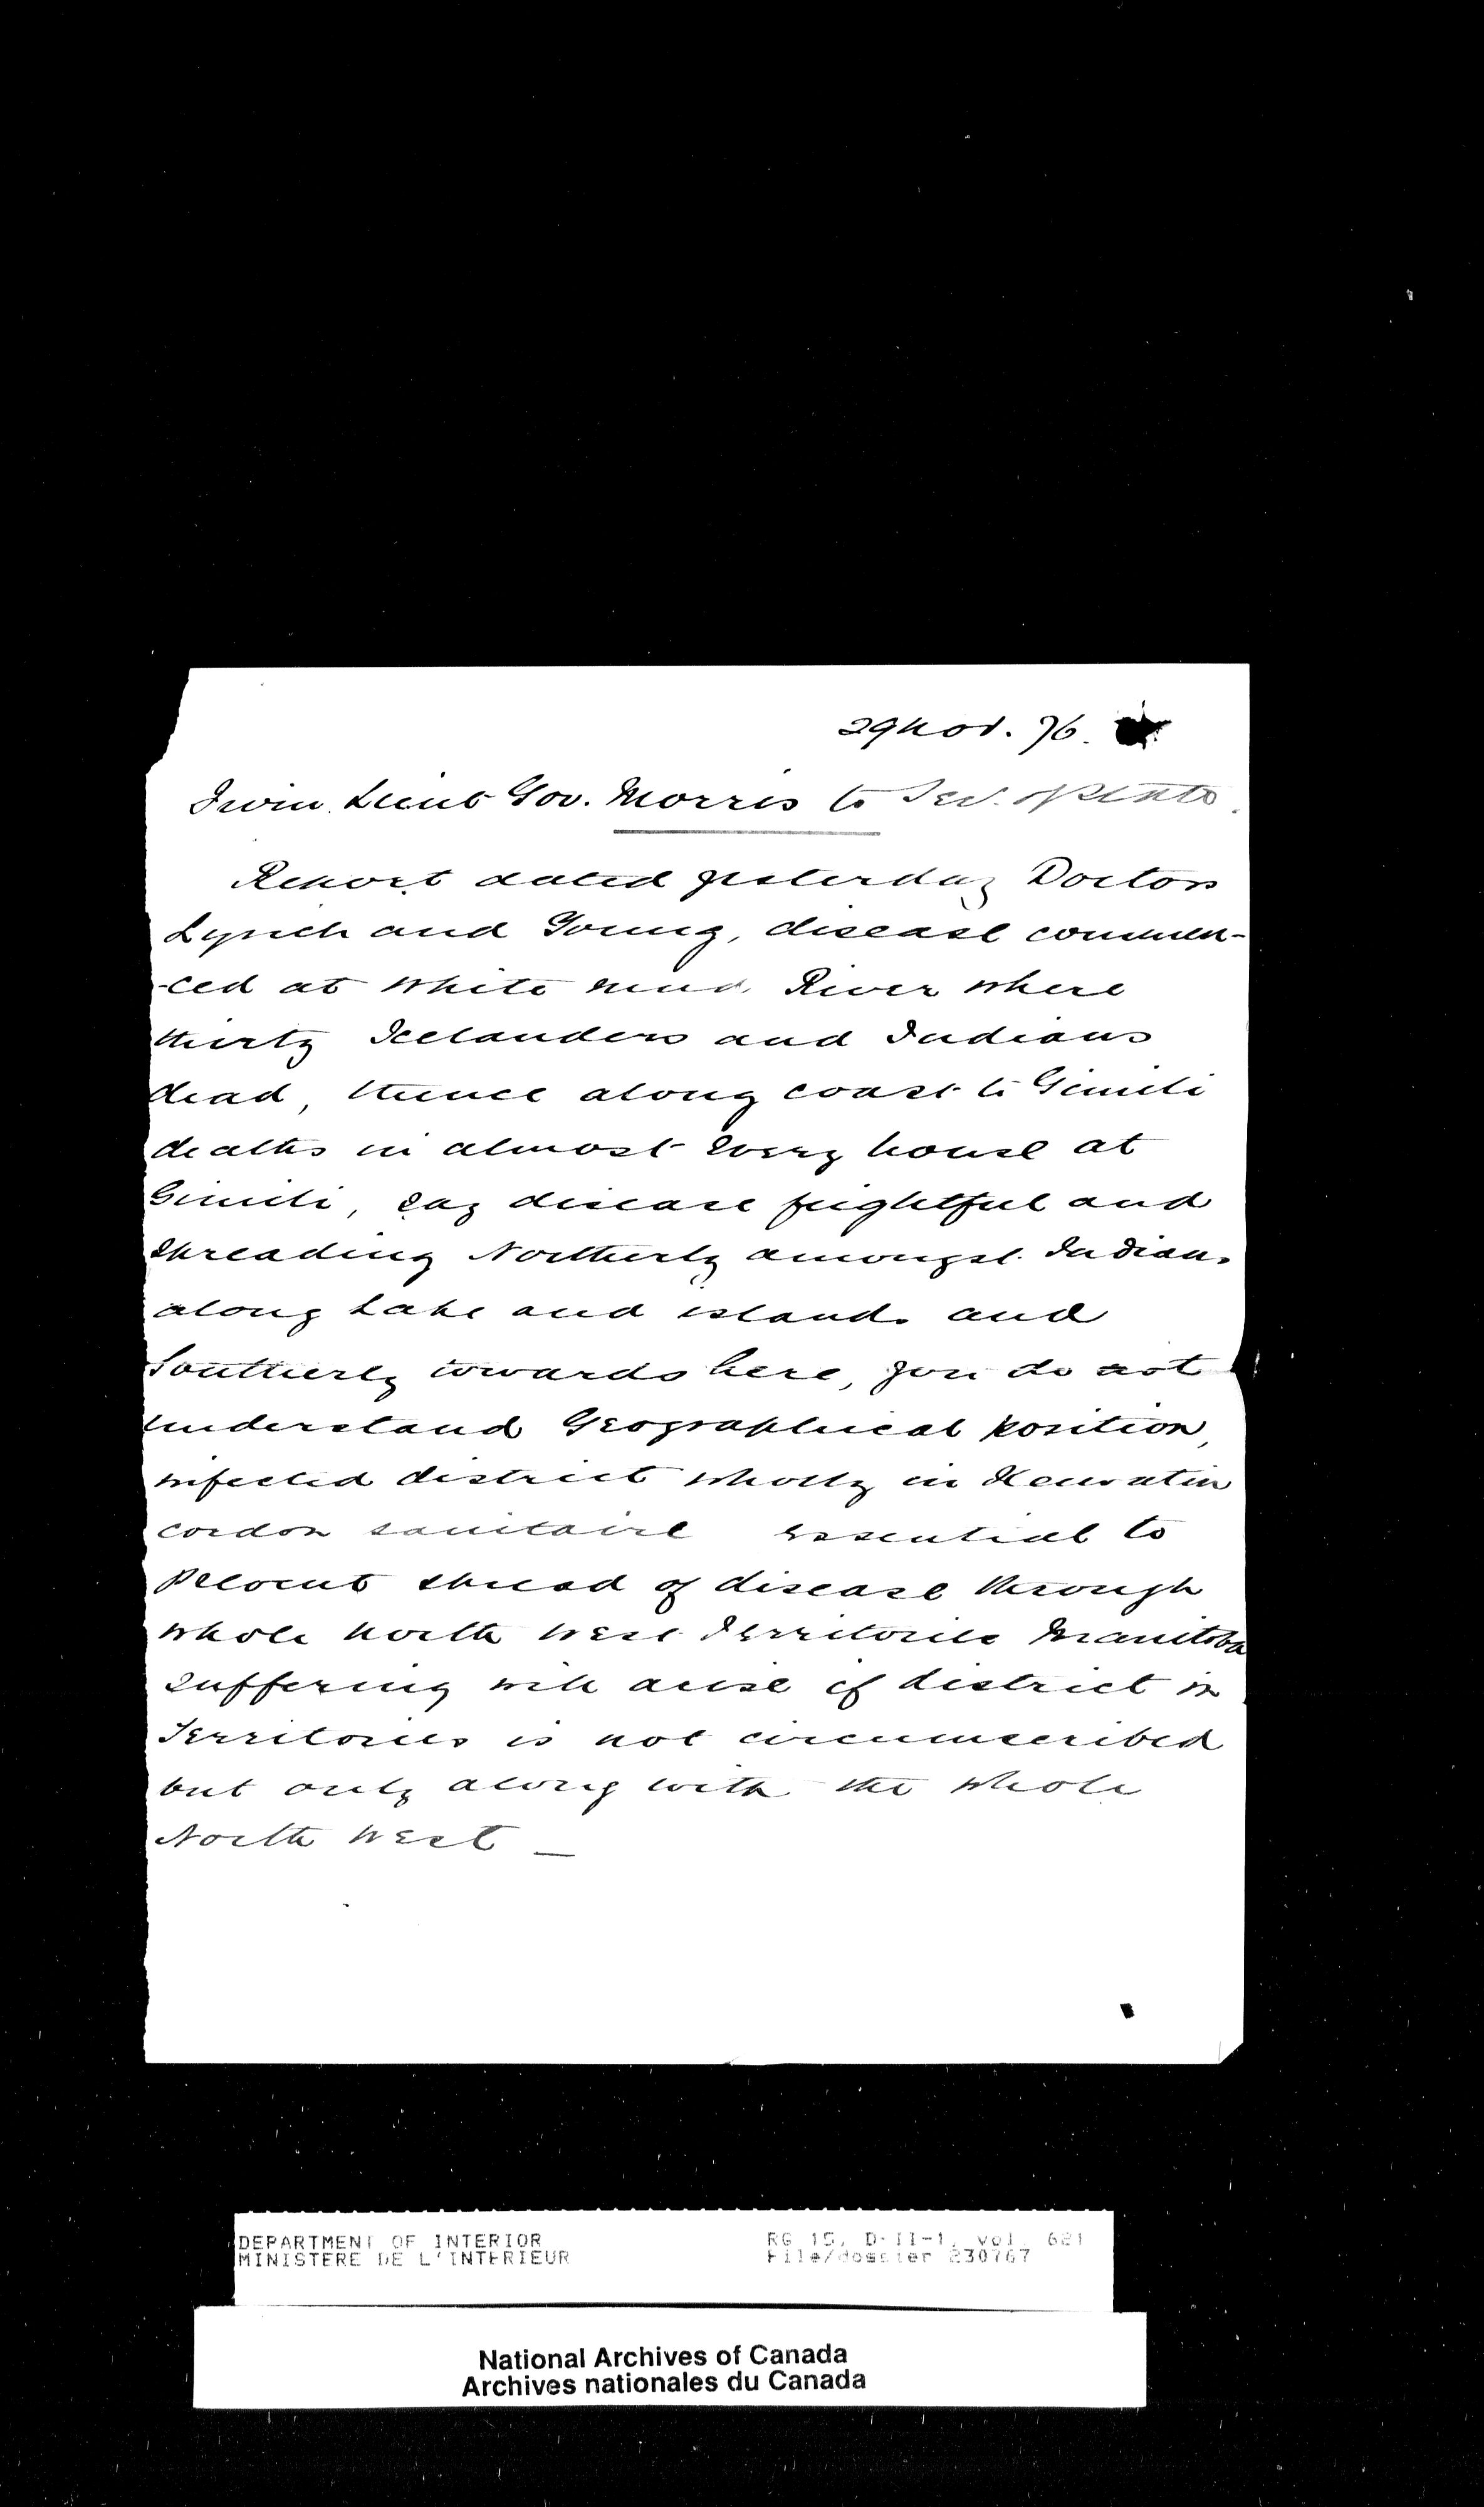 29 Nov. 76.
From Lieut Gov. Morris to Sec. State.
Report dated yesterday Doctors
Lynch and Young, disease commen-
-ced at White mud River where
thirty Icelanders and Indians
dead, thence along coast to Gimili
deaths in almost every house at
Gimili, say disease frightful and
spreading Northerly amongst Indians
along Lake and islands and
Southerly towards here, you do not
understand Geographical position,
infected district wholly in Keewatin
cordon sanitaire essential to
prevent spread of disease through
whole North West Territories Manitoba
suffering will arise if district in
Territories is not circumscribed
but only along with the whole
North West _
DEPARTMENT OF INTERIOR
MINISTERE DE L'INTERIEUR
RG 15, D-II-1, vol. 621
File/dossier 230767
National Archives of Canada
Archives nationales du Canada